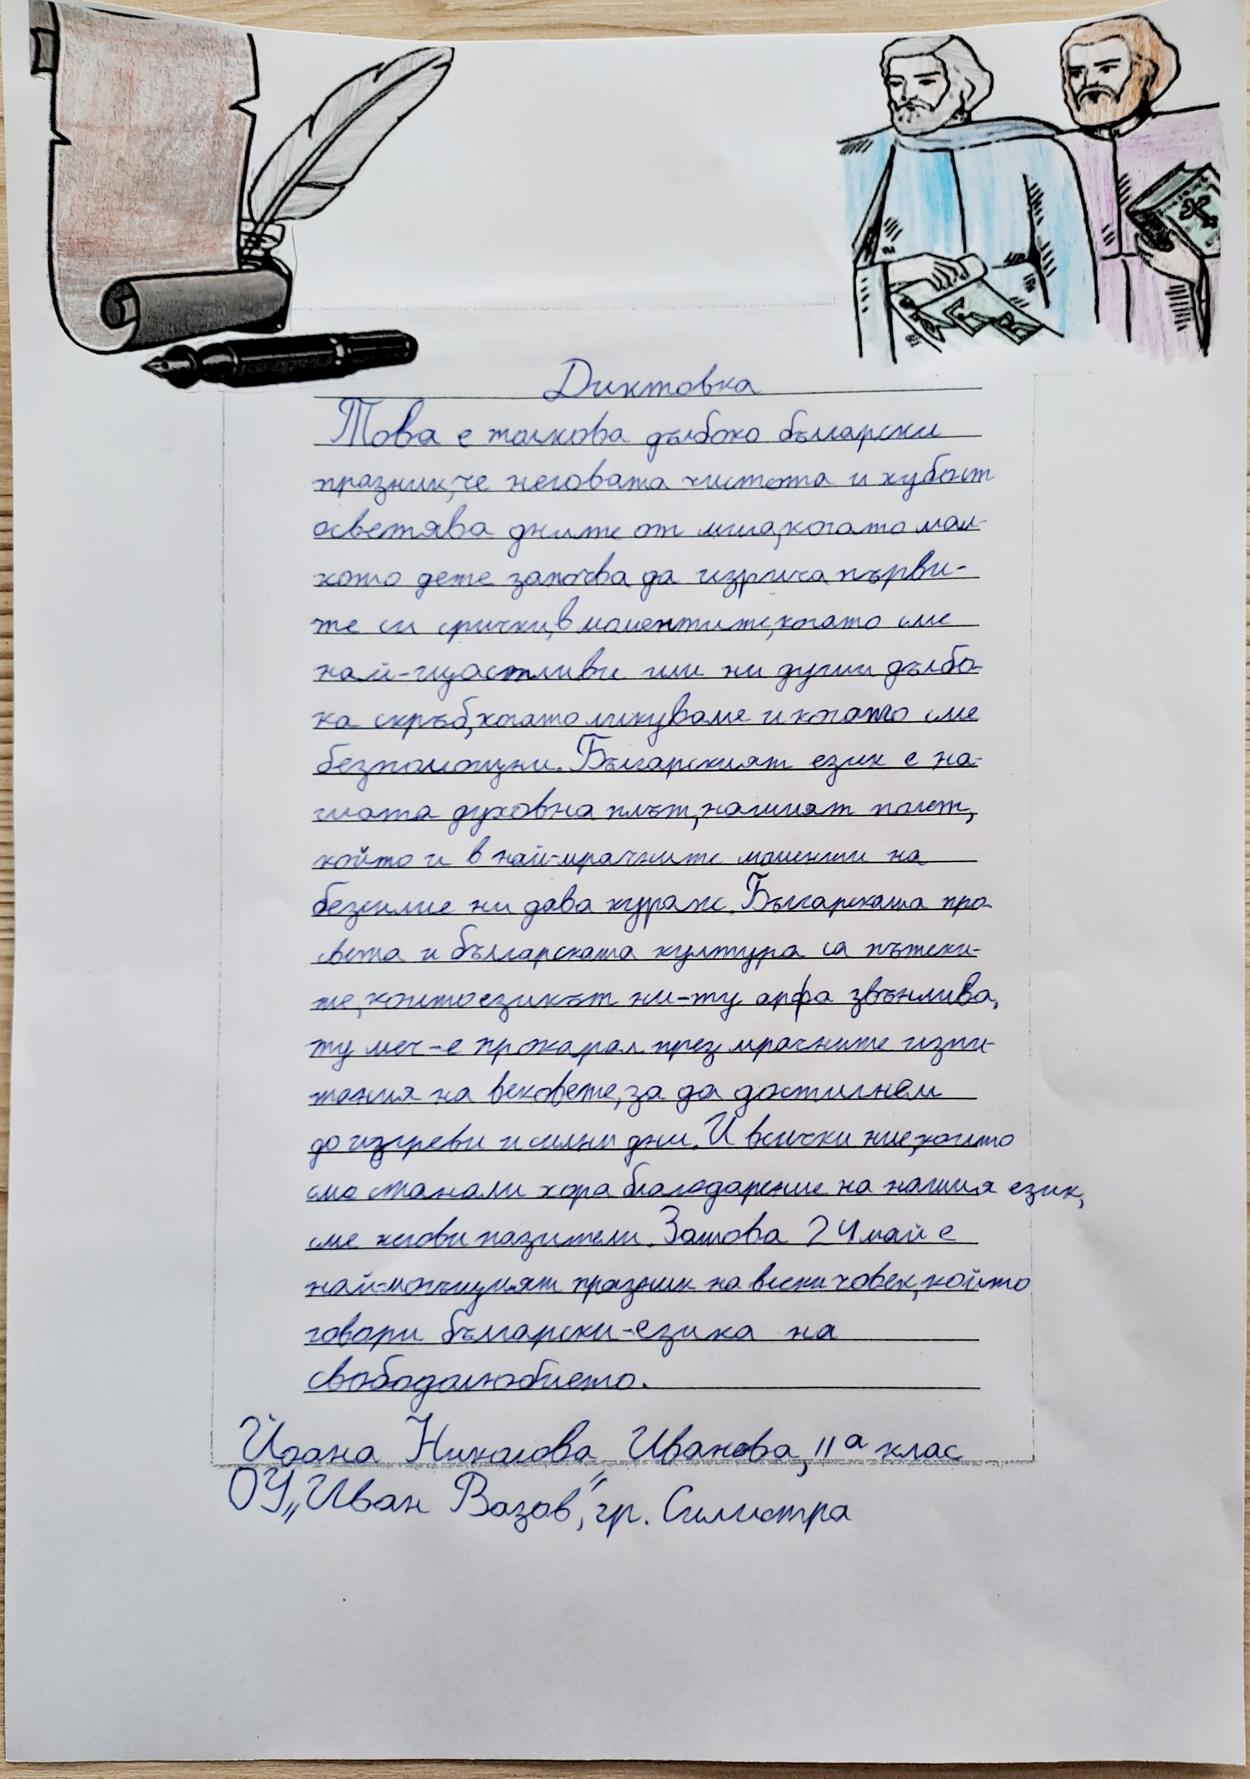 Диктовка
Това е толкова дълбоко български
празник, че неговата чистота и хубост
осветява дните от мига, когато мал-
кото дете започва да изрича първи-
те си срички, в моментите, когато сме
най-щастливи или ни души дълбо-
ка скръб, когато ликуваме и когато сме
безпомощни. Българският език е на-
шата духовна плът, нашият полет,
който и в най-мрачните моменти на
безсилие ни дава кураж. Българската про-
света и българската култура са пътеки-
те, които езикът ни-ту арфа звънлива,
ту меч-е прокарал през мрачните изпи-
тания на вековете, за да достигнем
до изгреви и силни дни. И всички ние, които
сме станали хора благодарение на нашия език,
сме негови пазители. Затова 24 май е
най-могъщият празник на всеки човек, който
говори български-езика на
свободолюбието.
Йоана Николова Иванова, IIа клас
ОУ„Иван Вазов", гр. Силистра